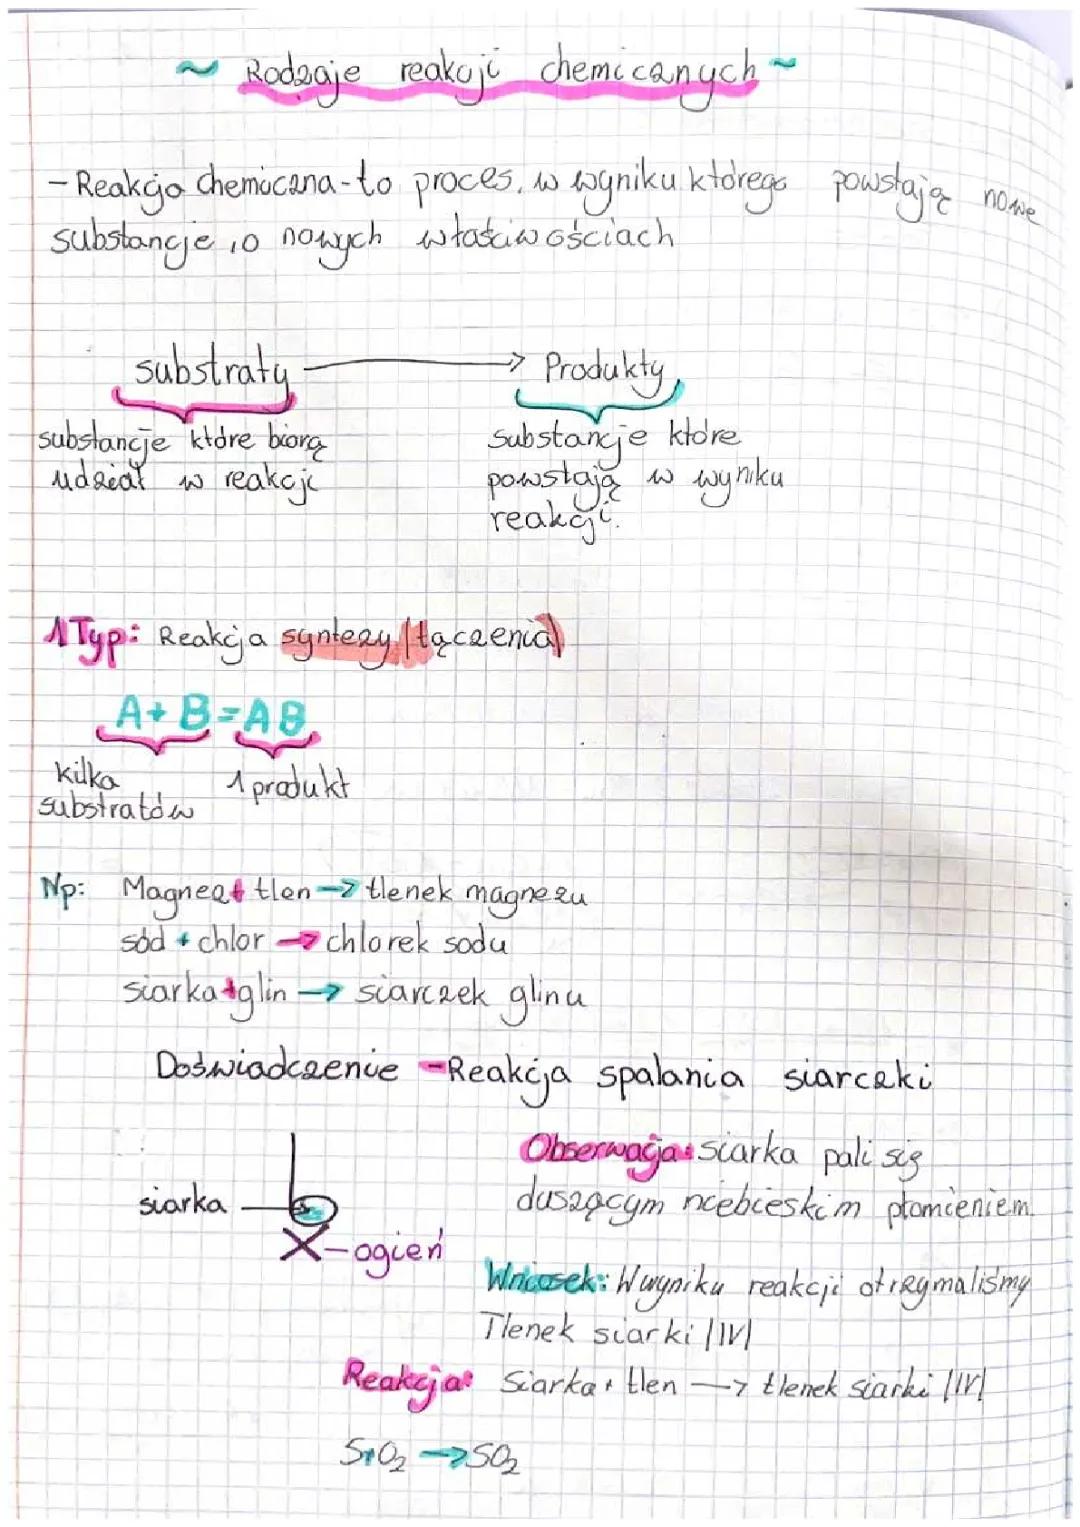 ~ Rodzaje reakcji chemicznych ~
- Reakcja chemiczna - to proces, w wyniku którego powstają nowe
substancje, o nowych właściwościach
substraty → Produkty
substancje które biorą
udział w reakcji
substancje które
powstają w wyniku
reakcji.
1 Typ: Reakcja syntezy (łączenia)
A + B = AB
kilka
substratów
1 produkt
Np: Magnez + tlen → tlenek magnezu
sód + chlor → chlorek sodu
siarka + glin → siarczek glinu
Doświadczenie - Reakcja spalania siarczki
siarka
X - ogień
Obserwacja: siarka pali się
duszącym niebieskim płomieniem.
Wniosek: W wyniku reakcji otrzymaliśmy
Tlenek siarki |IV|
Reakcja: Siarka + tlen → tlenek siarki |IV|
S + O₂ → SO₂